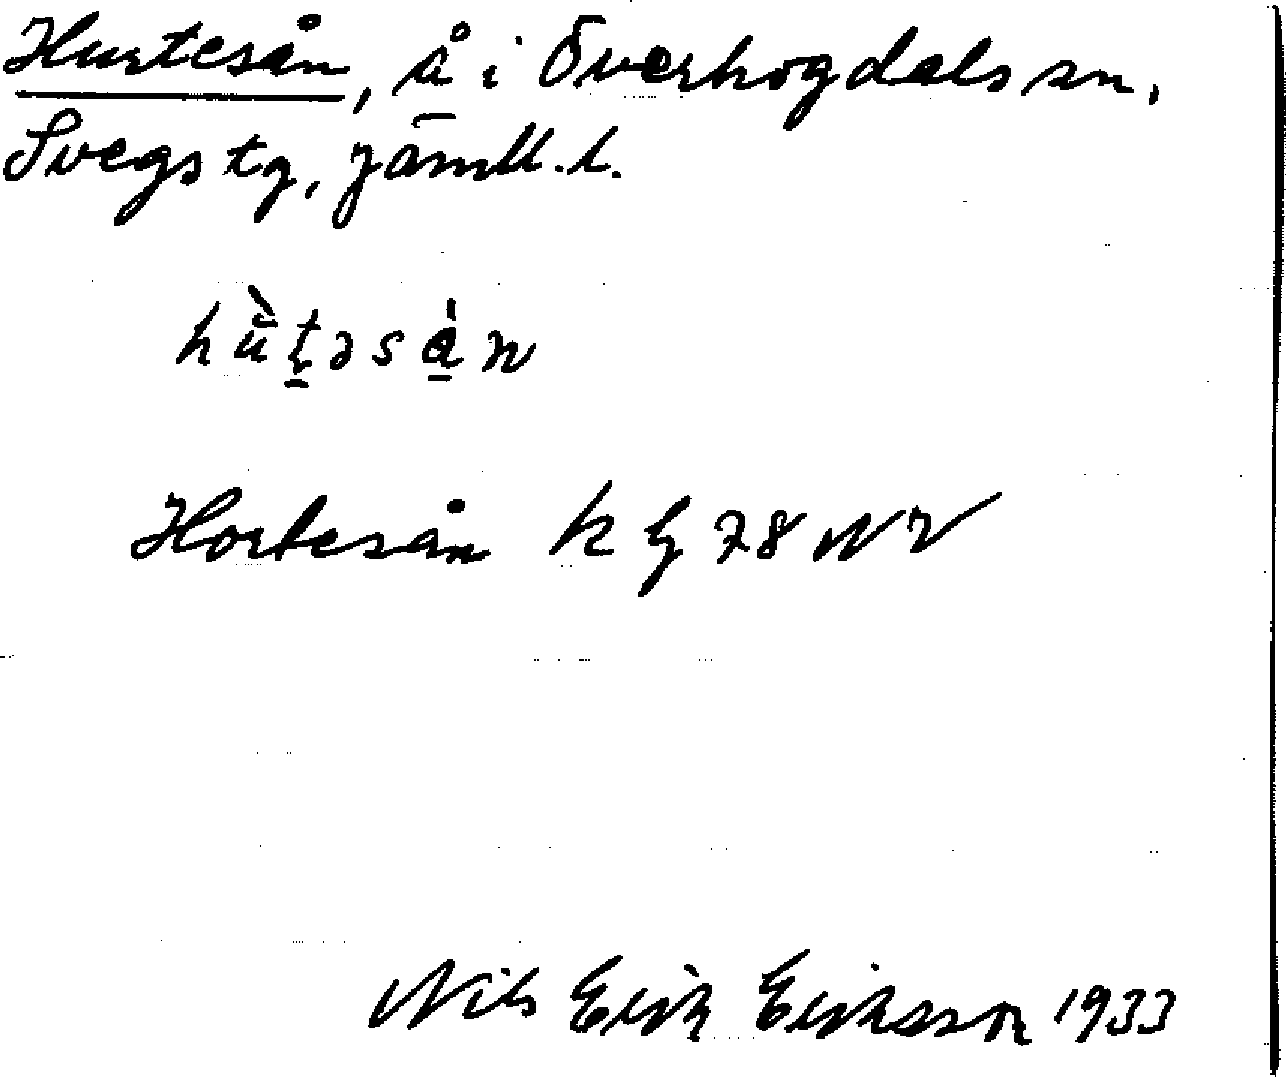 Hurtesån, å i Överhogdals sn,
Svegs tg, Jämtl. l.
Hortesån k bl 78 NV
Nils Erik Eriksson 1933